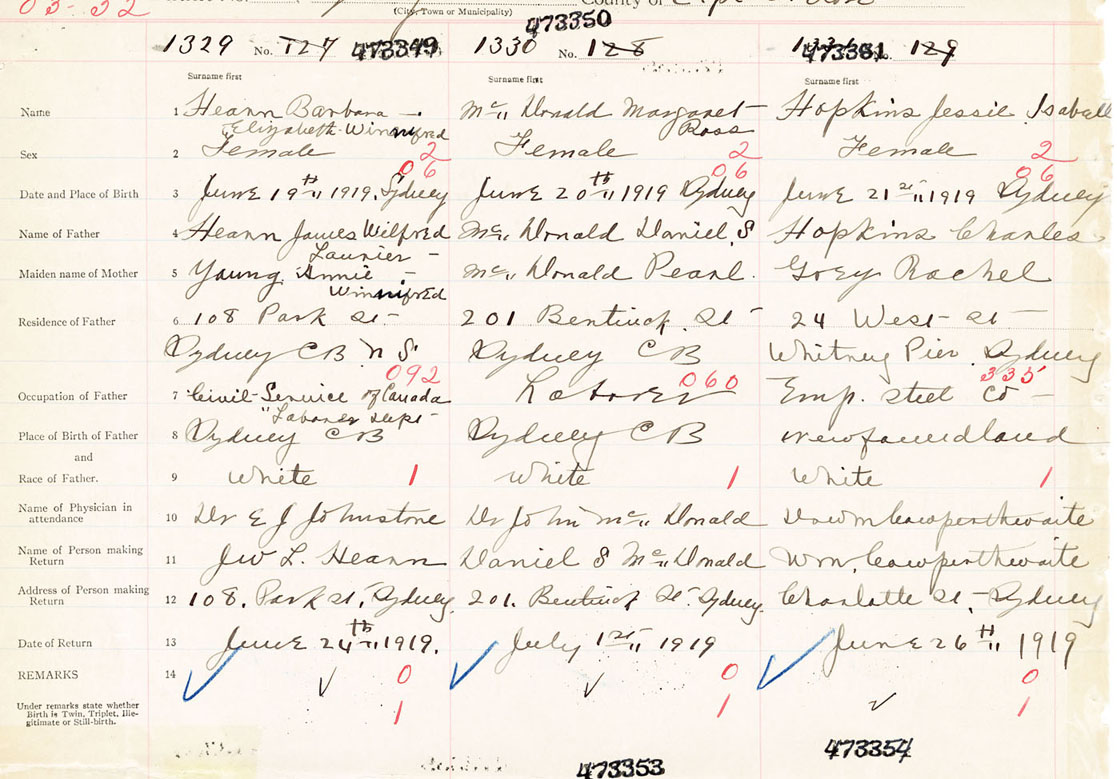 03-32
(City, Town or Municipality) County of Cape Breton
473350
1329 No. 127 473349 1330 No. 128 473351 129
Surname first Surname first Surname first
Name 1 Heann Barbara — Mc,, Donald Margaret Hopkins Jessie Isabell
Elizabeth Winnifred Ross
Sex 2 Female 2 Female 2 Female 2
06 06 06
Date and Place of Birth 3 June 19th,, 1919, Sydney June 20th,, 1919 Sydney June 21st,, 1919 Sydney
Name of Father 4 Heann James Wilfred Mc,, Donald Daniel, S Hopkins Charles
Laurier —
Maiden name of Mother 5 Young Annie — Mc,, Donald Pearl. Goey Rachel
Winnifred
Residence of Father 6 108 Park St— 201 Bentinck St— 24 West St—
Sydney CB N S. Sydney CB Whitney Pier Sydney
092 060 335
Occupation of Father 7 Civil Service of Canada Laborer Emp. Steel Co —
"Labaner Dept"
Place of Birth of Father 8 Sydney CB Sydney CB Newfoundland
and
Race of Father. 9 White 1 White 1 White 1
Name of Physician in attendance 10 Dr E J Johnstone Dr John Mc,, Donald Dr Wm Cowperthwaite
Name of Person making Return 11 Jw L. Heann Daniel S Mc,, Donald Wm. Cowperthwaite
Address of Person making Return 12 108. Park St, Sydney 201. Bentinck St. Sydney. Charlotte St,— Sydney
Date of Return 13 June 24th,, 1919. July 1st,, 1919 June 26th,, 1919
REMARKS 14 0 0 0
Under remarks state whether
Birth is Twin, Triplet, Ille-
gitimate or Still-birth. 1 1 1
473353 473354